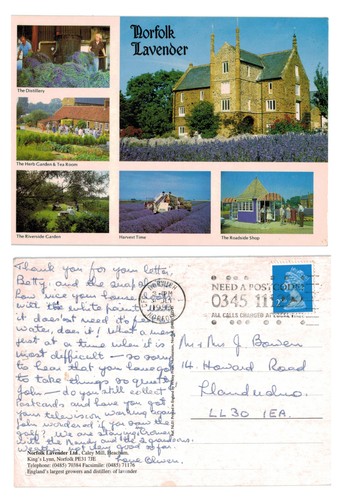 Norfolk
Lavender
The Distillery
The Herb Garden & Tea Room
The Riverside Garden
Harvest Time
The Roadside Shop
Thank you for your letter,
Betty, and the snap of
how nice your house looks
with the white paint
it does not need
water, does it! What a mess
just at a time when it is
most difficult — so sorry
to hear that you have got
to take things so quietly
John — do you still collect
postcards and have you got
your television working again
John wondered if you saw the
golf? We are staying
with the
weather not very good so far.
Love Olwen.
NEED A POSTCODE?
0345 111 222
ALL CALLS CHARGED AT LOCAL RATE
Mr & Mrs J. Bowen
14. Howard Road
Llandudno.
LL30 1EA.
Norfolk Lavender Ltd. Caley Mill, Heacham,
King's Lynn, Norfolk PE31 7JE
Telephone: (0485) 70384 Facsimile: (0485) 71176
England's largest growers and distillers of lavender